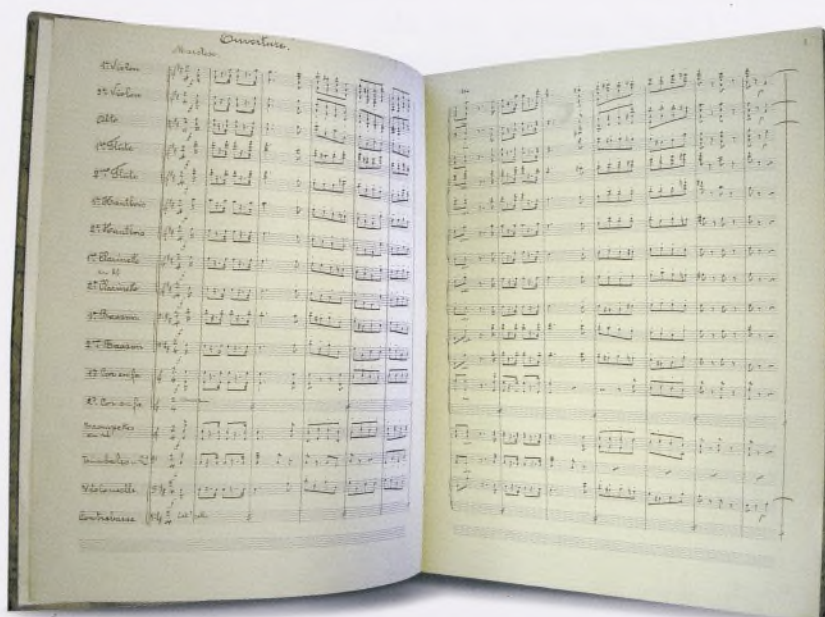 Ouverture.
1er Violon
2e Violon
Alto
1re Flûte
2me Flûte
1er Hautbois
2e Hautbois
1re Clarinete
2e Clarinete
1er Basson
2me Basson
1er Cor en fa
2e Cor en fa
Trompettes
Timbales
Violoncelle
Contrebasse